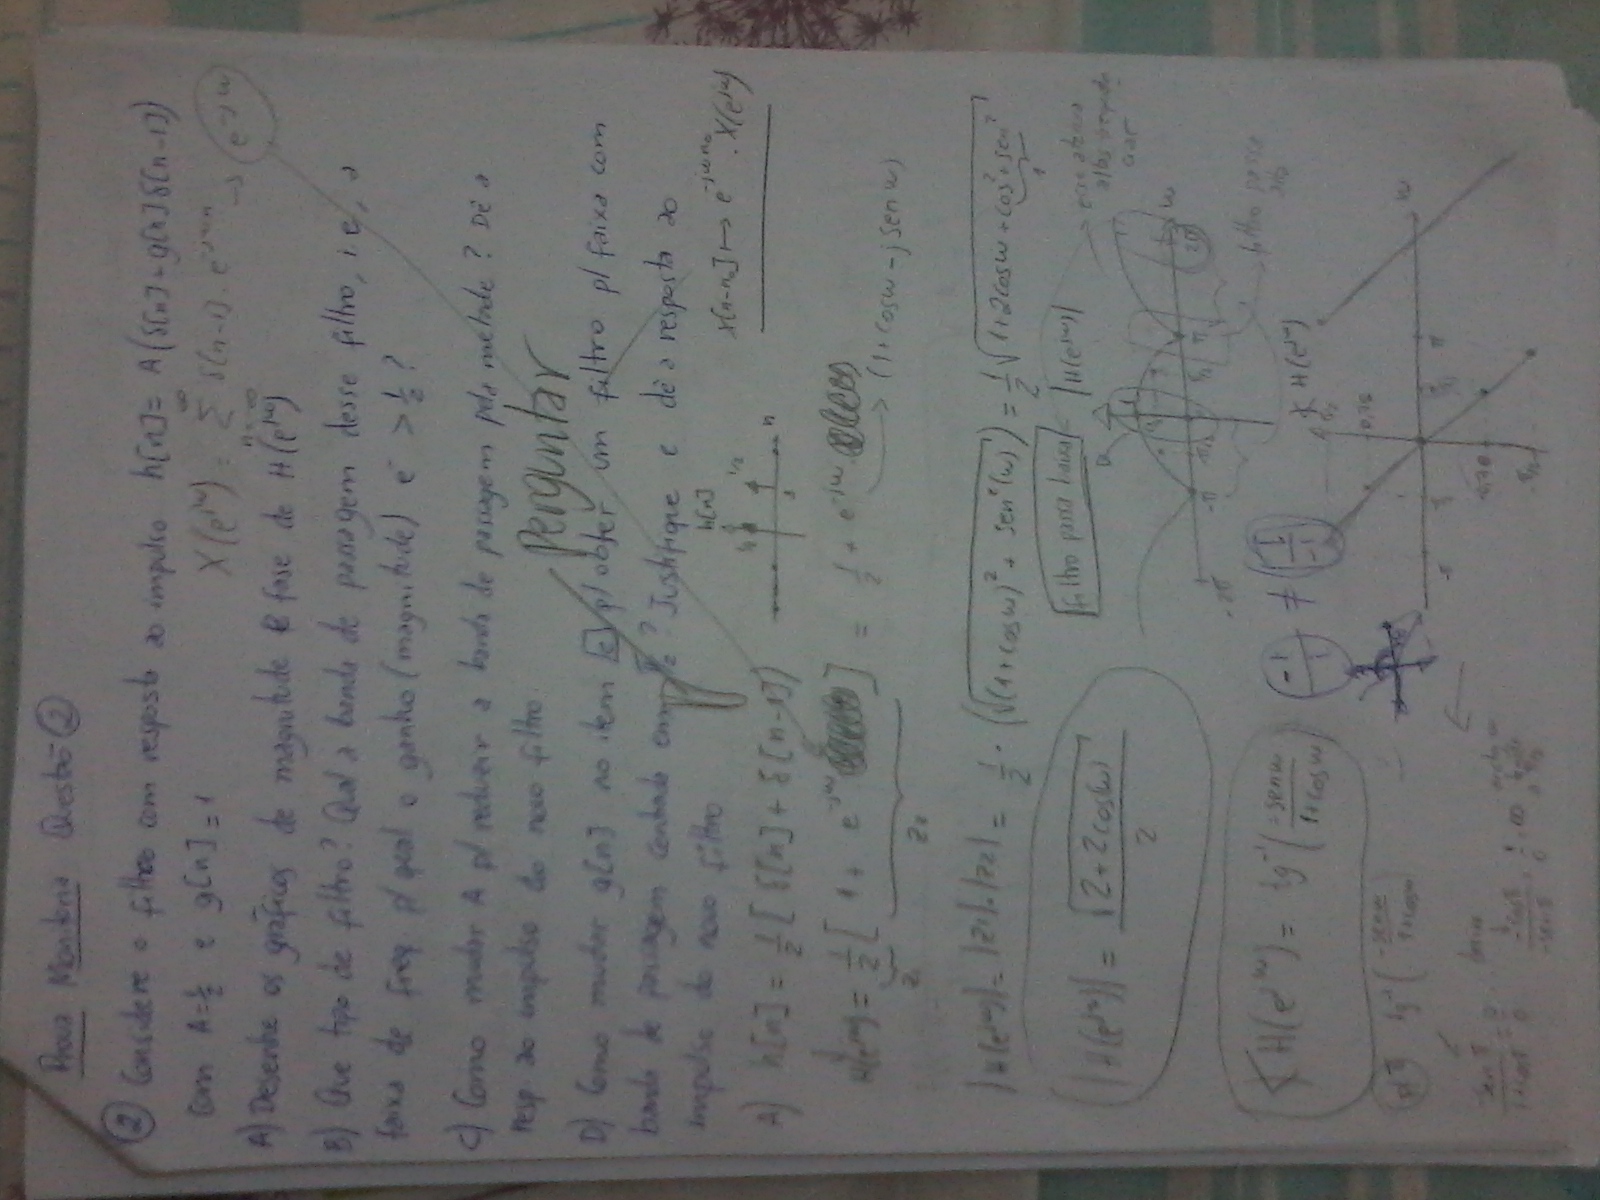 Prova Monitoria Questão 2
2 Considere o filtro com resposta ao impulso h[n] = A(δ[n] + g[n] δ[n-1])
com A = 1/2 e g[n] = 1
X(e^jω) = Σ n=-∞ ∞ δ(n-1) . e^-jωn → e^-jω
A) Desenhe os gráficos de magnitude e fase de H(e^jω)
B) Que tipo de filtro? Qual a banda de passagem desse filtro, i.e., a
faixa de freq. p/ qual o ganho (magnitude) é > 1/2 ?
C) Como mudar A p/ reduzir a banda de passagem pela metade? Dê a
resp ao impulso do novo filtro.
Perguntar
D) Como mudar g[n] no item C p/ obter um filtro p/ faixa com
banda de passagem centrada em π/2 ? Justifique e dê a resposta ao
impulso do novo filtro
x[n-n₀] ↦ e^-jωn₀ . X(e^jω)
A) h[n] = 1/2 [ δ[n] + δ[n-1])
h[n]
1/2
n
1
H(e^jω) = 1/2 [ 1 + e^-jω ] = 1/2 + e^-jω
z1
z2
→ (1+cosω - jsenω)
|H(e^jω)| = |z1|.|z2| = 1/2 . (√(1+cosω)² + sen²(ω)) = 1/2 √1+2cosω + cos²+sen²
1
|H(e^jω)| = √2+2cos(ω) / 2
filtro passa baixa
|H(e^jω)|
1
ω
-2π -π π/2 π 2π
filtro passa
∠H(e^jω) = tg⁻¹(-senω / 1+cosω)
-1/1 ≠ 1/-1
∠ H(e^jω)
π/2
0,78
ω
-π π/2 π
-0,78
-π/2
p/ π tg⁻¹(-senω / 1+cosω)
-sen π / 1+cosπ = 0/0
-cosπ / -senπ
1/0 = ∞